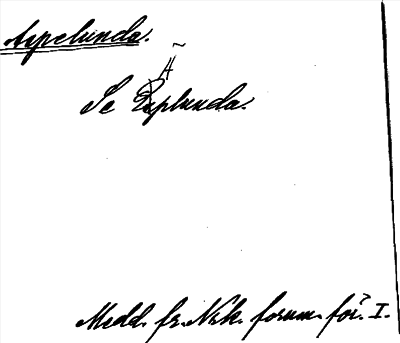 Aspelunda.
Se Äsplunda.
Medd. fr. Nrk. fornm. för. I.